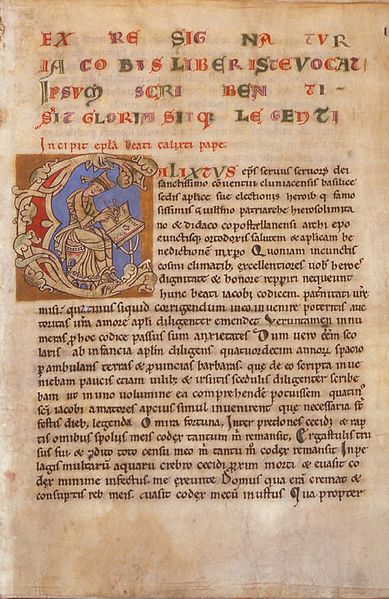 EX RE SIGNATUR
IACOBUS LIBER ISTE VOCAT'
IPSUM SCRIBENTI-
SIT GLORIA SITQ LEGENTI
Incipit epła beati calixti pape.
CALIXTUS ep̄s seruus seruorū dei
sanctissimo conuentui cluniacensis basilice
sedis aplice sue electionis heroib; q famo
sissimis guillmo patriarche hierosolimita
no & didaco compostellanensi archi epo
cunctisque ortodoxis salutem & aplicam be
nedictionē in xpo. Quoniam in cunctis
cosmi climatib; excellentiores uob heroes
dignitate & honore reppiri nequeunt
hunc beati iacobi codicem paternitati ure
misi: quatinus siquid corrigendum in eo inuenire poteritis auc
toritas ura amore apli diligenter emendet. Veruntamen innu
meras p hoc codice passus sum anxietates. Dum uero eēm sco
laris ab infancia aplm diligens quatuordecim annorū spacio
perambulans terras & prouincias barbaras, que de eo scripta inue
niebam paucis ceciam uilib; & irsutis scedulis diligenter scribe
bam ut in uno uolumine ea comprehendē potuissem quatin'
sci iacobi amatores apcius simul inuenirent que necessaria st̄
festis dieb; legenda. O mira fortuna, Inter predones cecidi & rap
tis omnibus spoliis meis codex tantum m̄ remansit, Ergastulis tru
sus fui & pdito toto censu meo m̄ tantū m̄ codex remansit. In pe
lagis multarū aquarū crebro cecidi prxim morti & euasit co
dex minime infectus. me exeunte. Domus qua erā cremat' &
consuptis reb; meis euasit codex mecū inustus. Qua propter